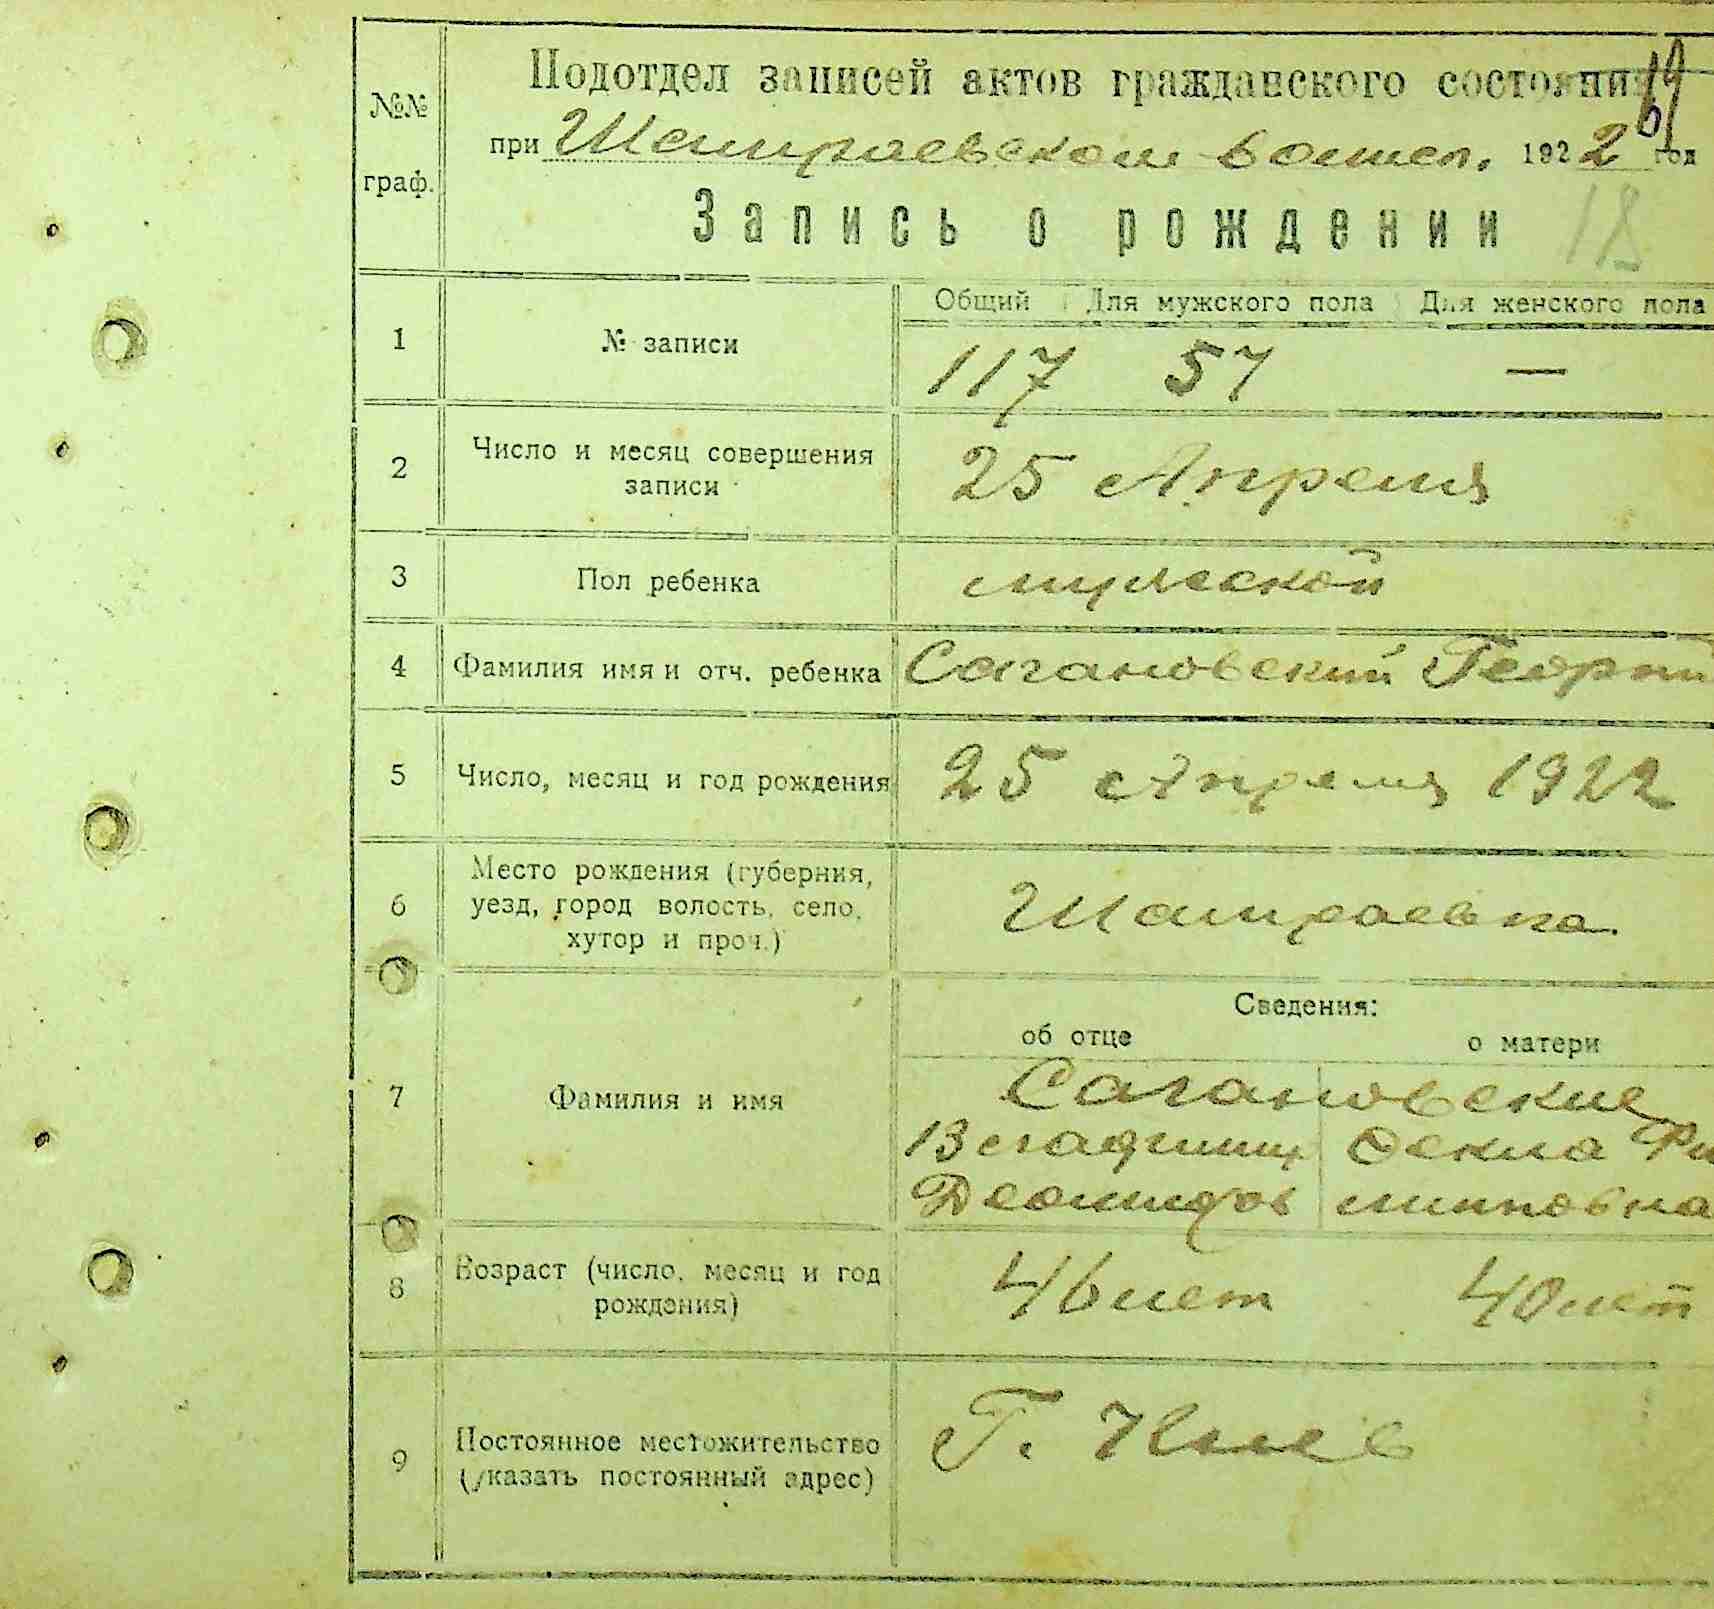 Подотдел записей актов гражданского состояния
при Шамраевском волисп. 1922 год
18
Запись о рождении
№№ граф.
Общий Для мужского пола Для женского пола
1 № записи 117 57 —
2 Число и месяц совершения записи 25 Апреля
3 Пол ребенка мужской
4 Фамилия имя и отч. ребенка Сагановский Георгий
5 Число, месяц и год рождения 25 Апреля 1922
6 Место рождения (губерния, уезд, город волость, село, хутор и проч.) Шамраевка.
Сведения:
об отце о матери
7 Фамилия и имя Сагановские
Владимир Фекла Фи
Леонидов липповна
8 Возраст (число, месяц и год рождения) 46 лет 40 лет
9 Постоянное местожительство (указать постоянный адрес) Г. Киев